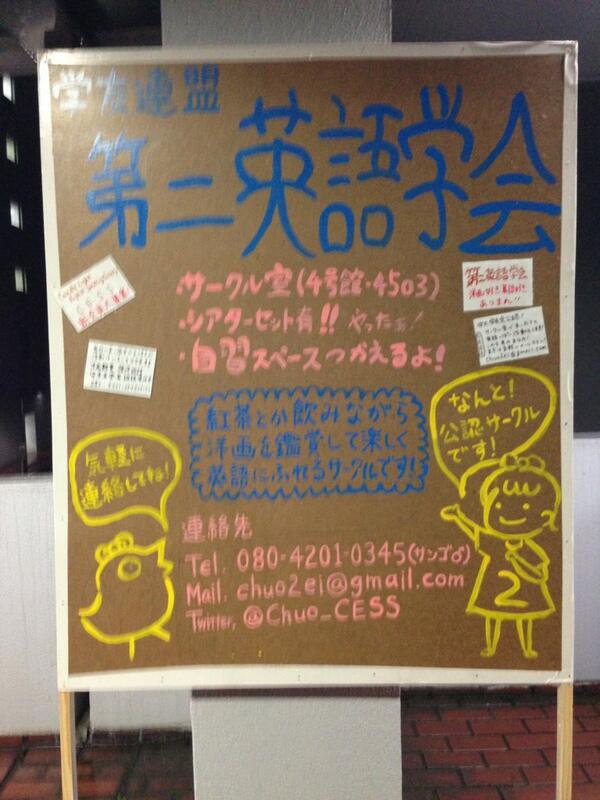 学友連盟
第二英語学会
・サークル室(4号館・4503)
・シアターセット有!! やったぁ!
・自習スペースつかえるよ!
第二英語学会
あつまれ!!
紅茶とか飲みながら
洋画を鑑賞して楽しく
英語にふれるサークルです!
なんと!
公認サークル
です!
気軽に
連絡してね!
連絡先
Tel. 080-4201-0345(サンゴ♂)
Mail. chuo2ei@gmail.com
Twitter. @Chuo_CESS
2